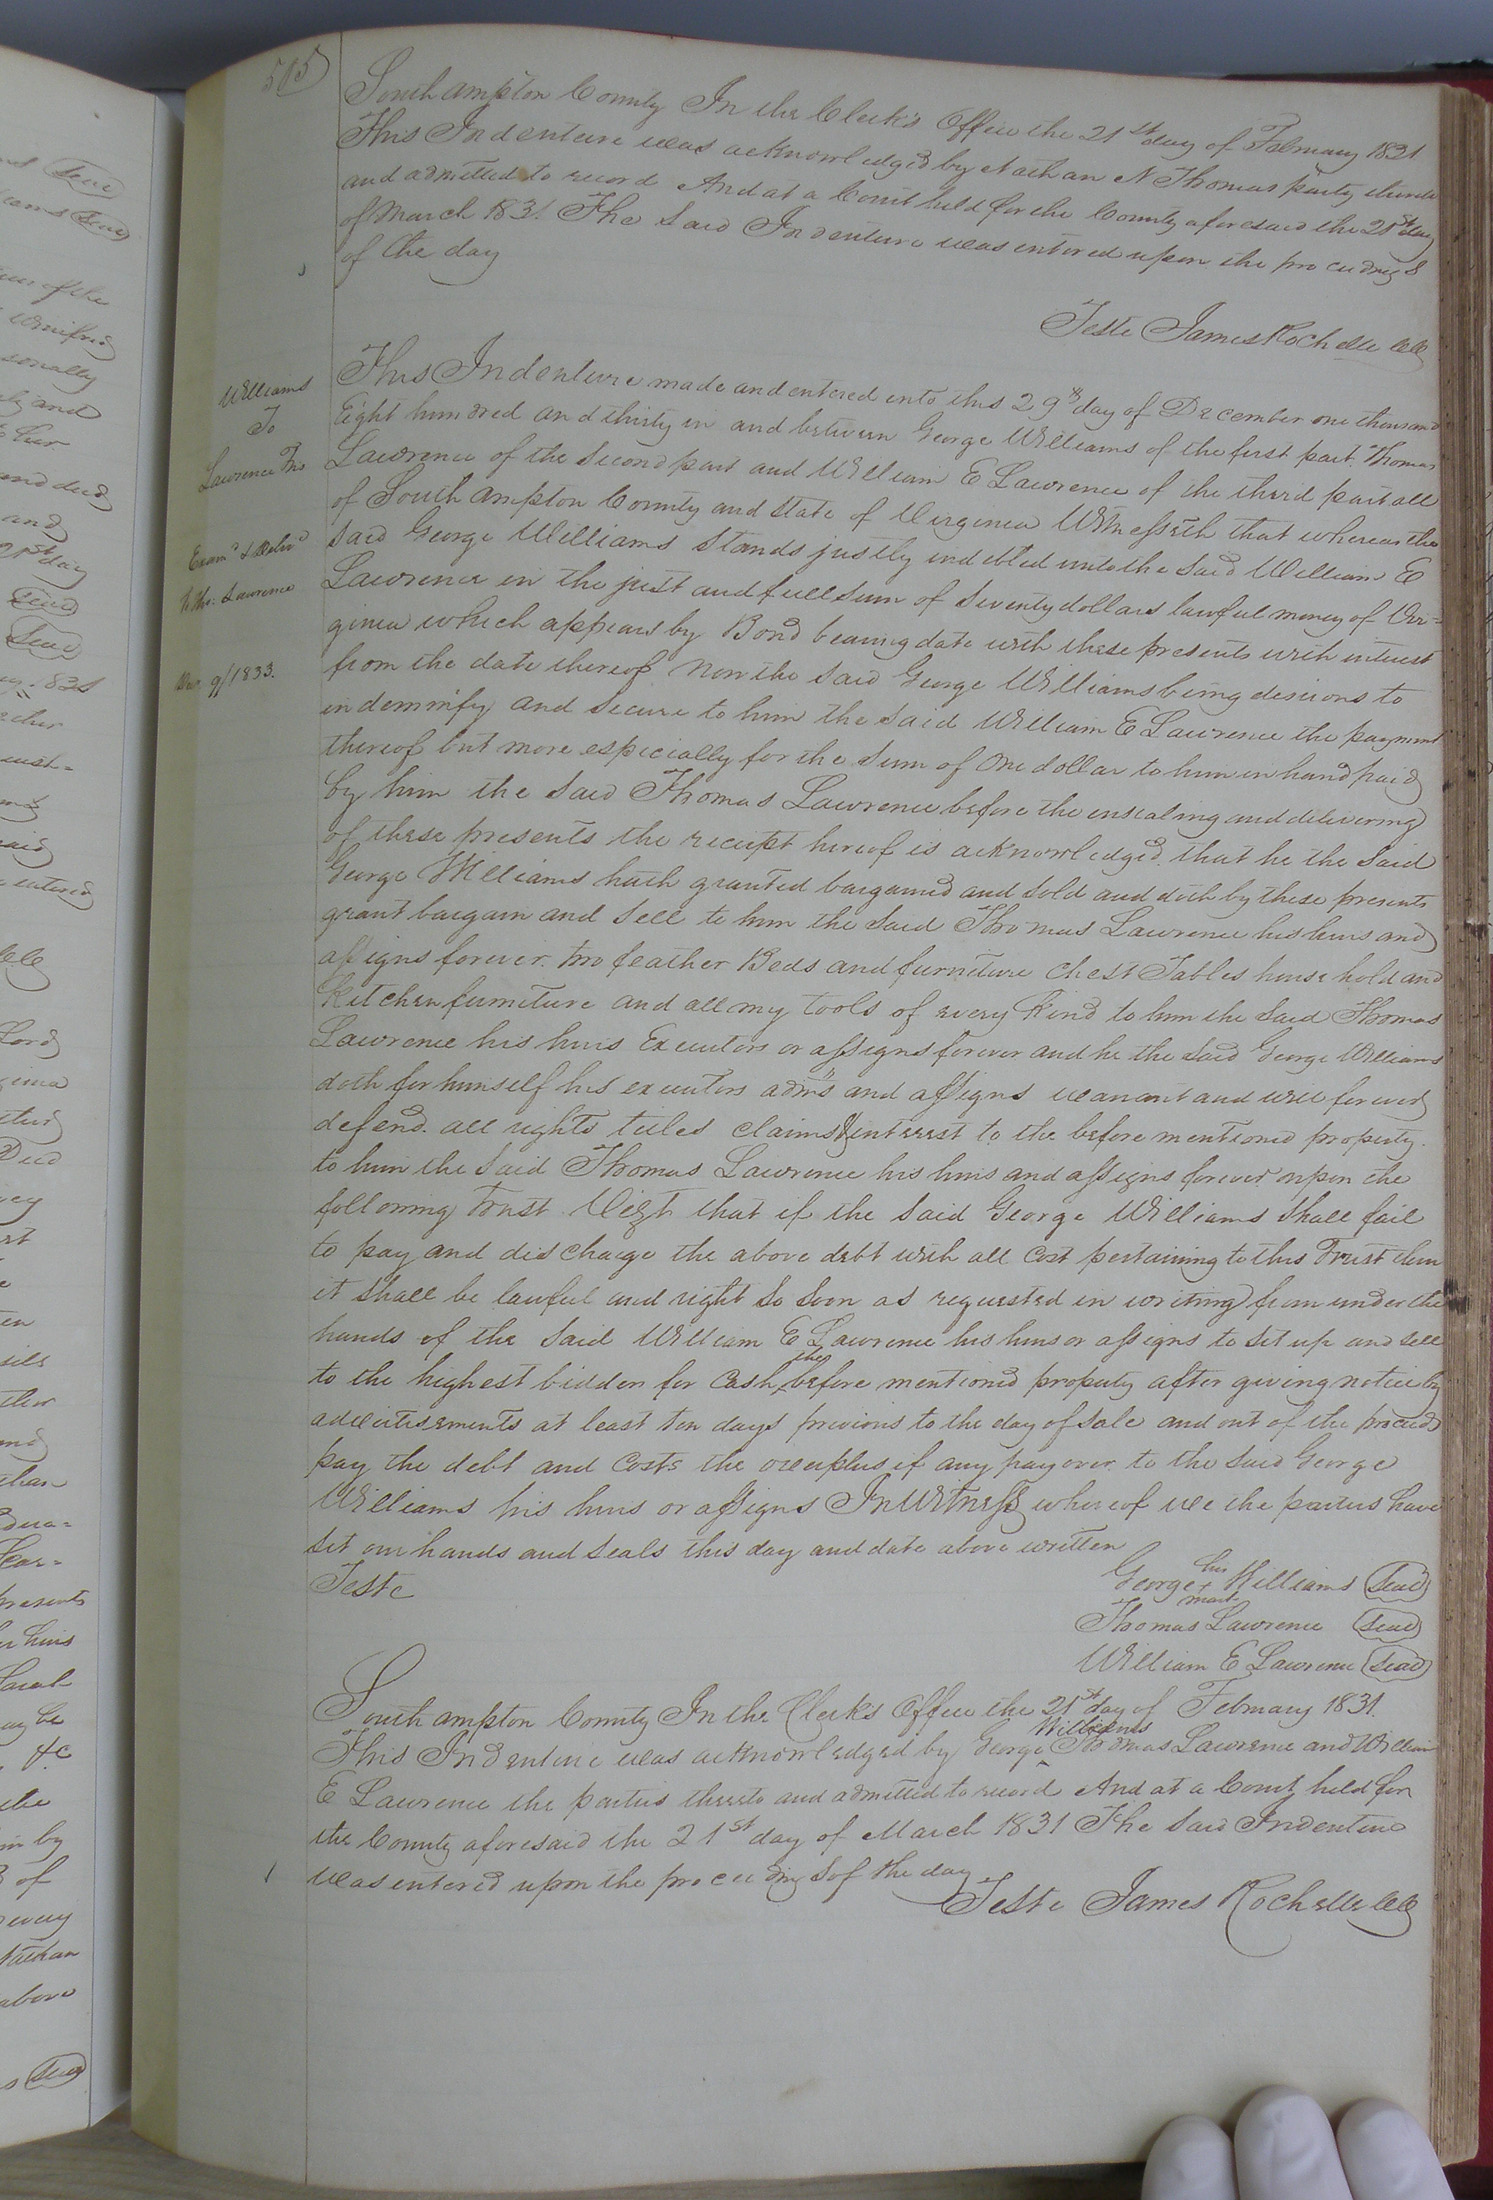 515
Southampton County In the Clerk's Office the 21st day of February 1831
This Indenture was acknowledged by Nathan N Thomas party thereto
and admitted to record And at a Court held for the County aforesaid the 21st day
of March 1831 The Said Indenture was entered upon the proceedings
of the day
Teste James Rochelle CC
Williams
To
Lawrence Trs
Examd & Delivd
to Tho: Lawrence
9/1833.
This Indenture made and entered into this 29th day of December one thousand
Eight hundred and thirty in and between George Williams of the first part. Thomas
Lawrence of the Second part and William E Lawrence of the third part all
of Southampton County and State of Virginia Witnesseth that whereas the
Said George Williams Stands justly indebted unto the Said William E
Lawrence in the just and full Sum of Seventy dollars lawful money of Vir=
ginia which appears by Bond bearing date with these presents with interest
from the date thereof Now the Said George Williams being desirous to
indemnify and Secure to him the Said William E Lawrence the payment
thereof but more especially for the Sum of One dollar to him in hand paid
by him the Said Thomas Lawrence before the ensealing and delivering
of these presents the receipt hereof is acknowledged. that he the Said
George Williams hath granted bargained and Sold and doth by these presents
grant bargain and Sell to him the Said Thomas Lawrence his heirs and
assigns forever. two feather Beds and furniture Chest Tables house hold and
Kitchen furniture and all my tools of every Kind to him the Said Thomas
Lawrence his heirs Executors or assigns forever and he the Said George Williams
doth for himself his executors admrs and assigns warrant and will forever
defend. all rights titles claims & interest to the before mentioned property.
to him the Said Thomas Lawrence his heirs and assigns forever upon the
following Trust Vizt that if the Said George Williams Shall fail
to pay and discharge the above debt with all Cost pertaining to this Trust then
it Shall be lawful and right So Soon as requested in writing from under the
hands of the Said William E Lawrence his heirs or assigns to Set up and Sell
to the highest bidder for Cash the before mentioned property after giving notice by
advertisements at least ten days previous to the day of Sale and out of the proceeds
pay the debt and Costs the overplus if any pay over to the Said George
Williams his heirs or assigns In Witness whereof we the parties have
Set our hands and Seals this day and date above written
Teste
George his + mark Williams Seal
Thomas Lawrence Seal
William E Lawrence Seal
Southampton County In the Clerk's Office the 21st day of February 1831.
This Indenture was acknowledged by George Williams Thomas Lawrence and William
E Lawrence the parties thereto and admitted to record And at a Court held for
the County aforesaid the 21st day of March 1831 The Said Indenture
was entered upon the proceedings of the day
Teste James Rochelle CC